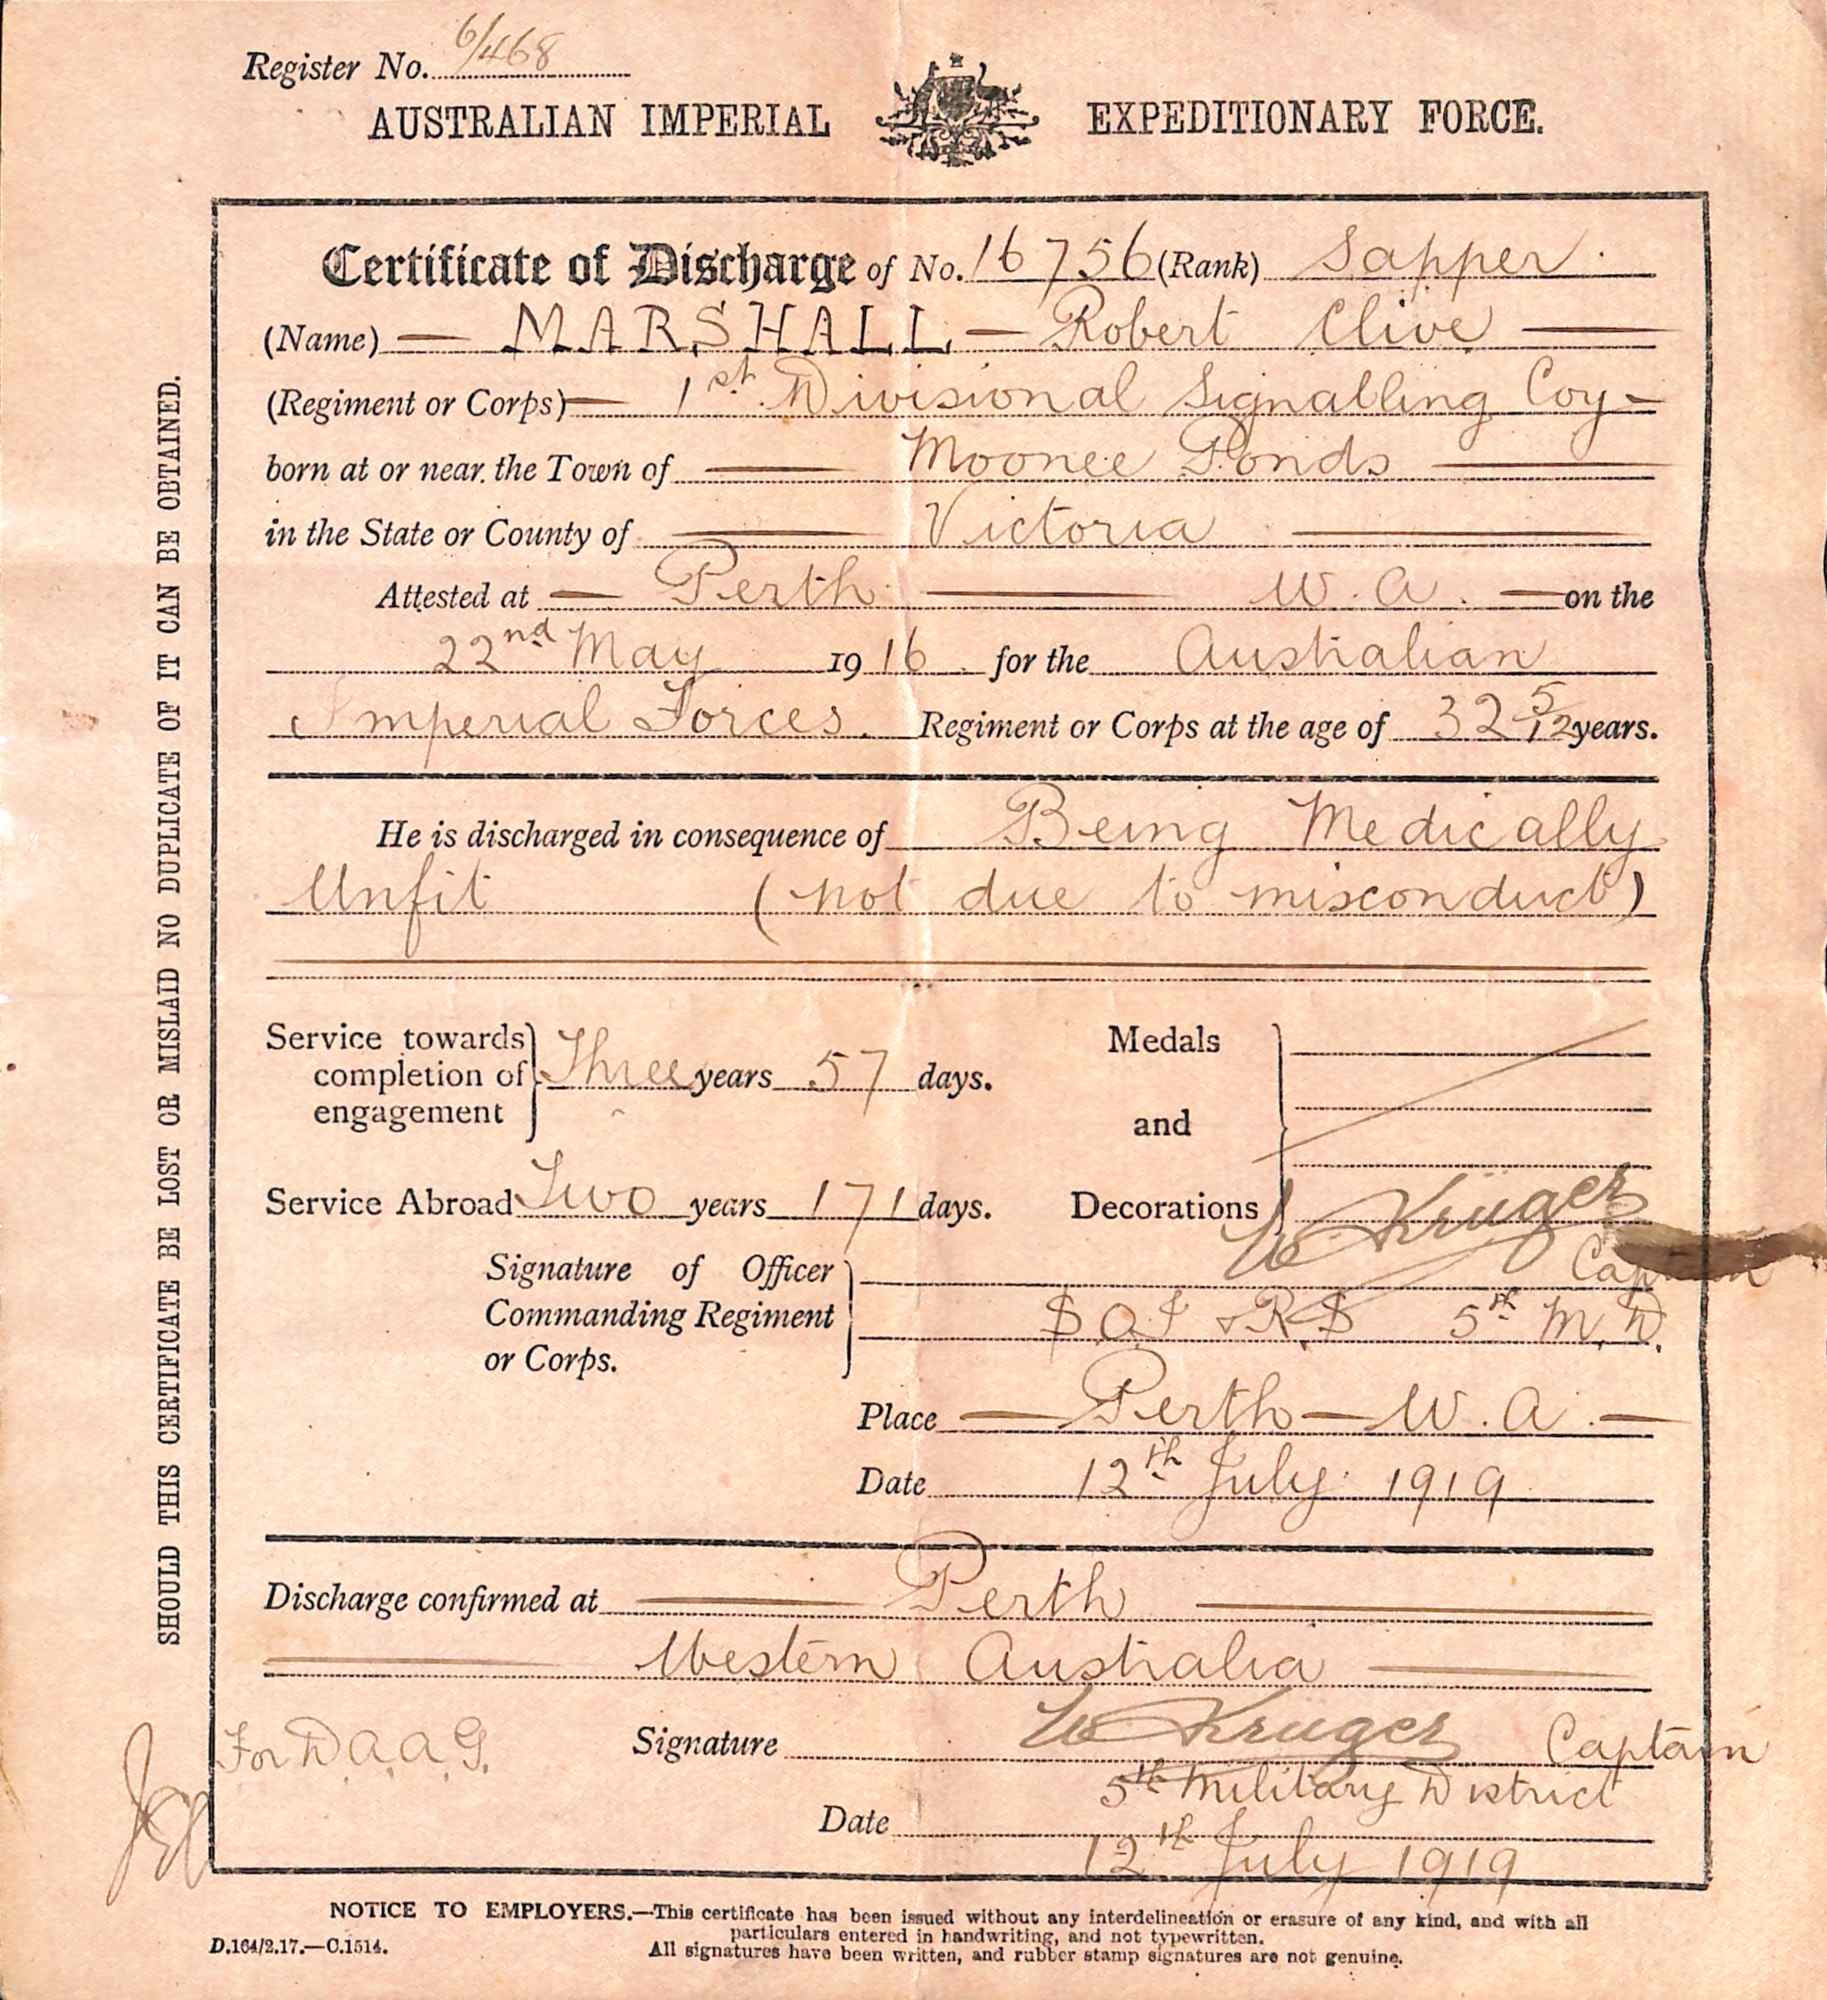 Register No. 6/468
AUSTRALIAN IMPERIAL EXPEDITIONARY FORCE.
Certificate of Discharge of No. 16756 (Rank) Sapper.
(Name) — MARSHALL — Robert Clive —
(Regiment or Corps) — 1st Divisional Signalling Coy —
born at or near the Town of — Moonee Ponds —
in the State or County of — Victoria —
Attested at — Perth — W.A. — on the
22nd May 1916 for the Australian
Imperial Forces. Regiment or Corps at the age of 32 5/12 years.
He is discharged in consequence of Being Medically
Unfit (not due to misconduct)
Service towards completion of engagement } Three years 57 days.
Medals and Decorations
Service Abroad Two years 171 days.
Signature of Officer Commanding Regiment or Corps. } W Kruger Captain
5th M.D.
Place — Perth — W.A. —
Date 12th July 1919
Discharge confirmed at — Perth —
— Western Australia —
For D.A.A.G. Signature W Kruger Captain
5th Military District
Date 12th July 1919
NOTICE TO EMPLOYERS.—This certificate has been issued without any interdelineation or erasure of any kind, and with all
particulars entered in handwriting, and not typewritten.
D.164/2.17.—C.1514. All signatures have been written, and rubber stamp signatures are not genuine.
SHOULD THIS CERTIFICATE BE LOST OR MISLAID NO DUPLICATE OF IT CAN BE OBTAINED.